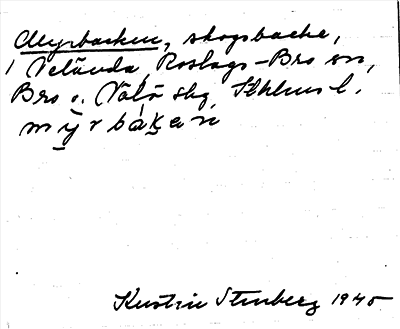 Myrbacken, skogsbacke,
i Vetånda, Roslags-Bro sn,
Bro o. Vätö skg, Sthlms l.
mỳrbákan
Kerstin Stenberg 1945